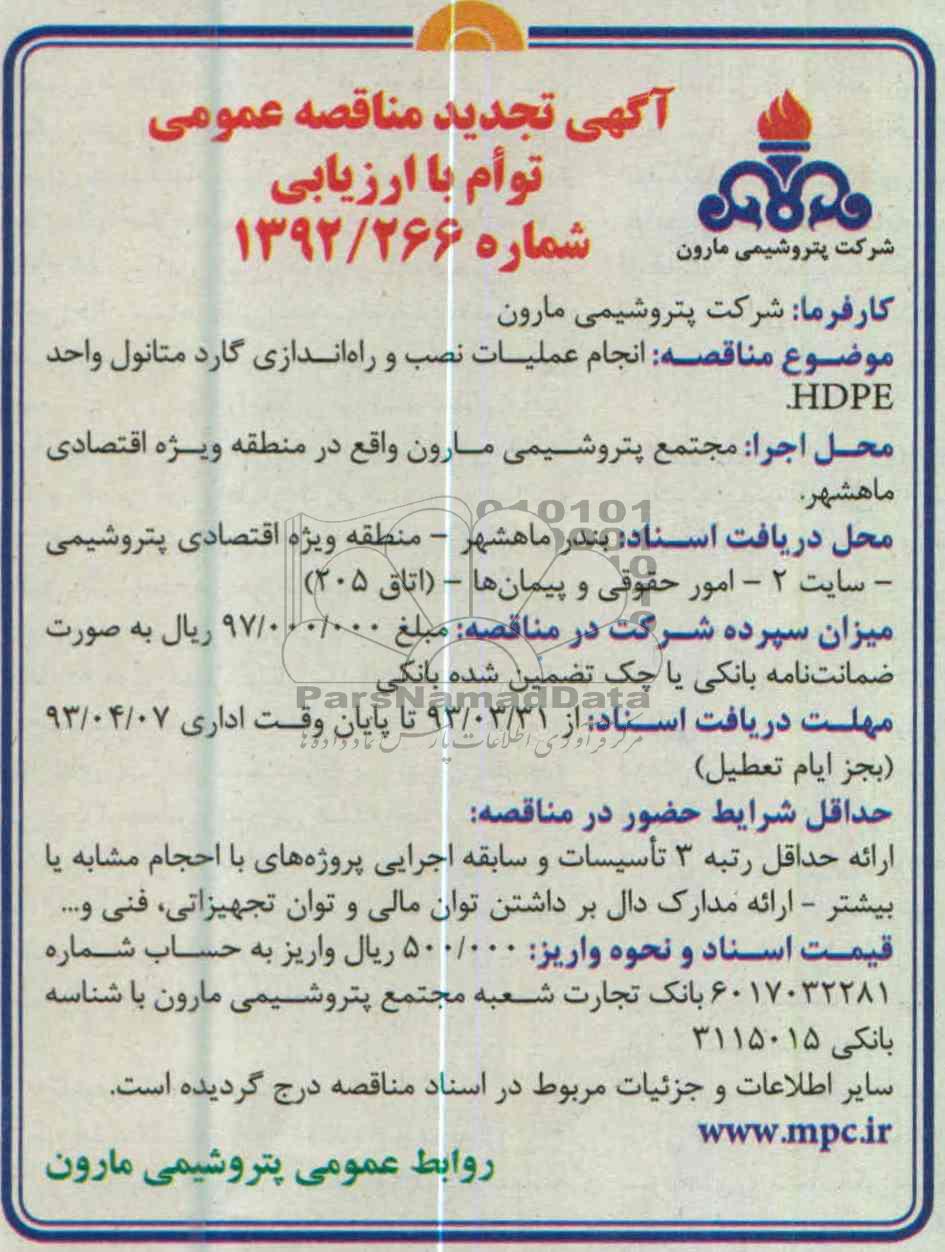 آگهی تجدید مناقصه عمومی
توأم با ارزیابی
شماره ۱۳۹۲/۲۶۶
شرکت پتروشیمی مارون
کارفرما: شرکت پتروشیمی مارون
موضوع مناقصه: انجام عملیات نصب و راه‌اندازی گارد متانول واحد
HDPE.
محل اجرا: مجتمع پتروشیمی مارون واقع در منطقه ویژه اقتصادی
ماهشهر.
محل دریافت اسناد: بندر ماهشهر – منطقه ویژه اقتصادی پتروشیمی
– سایت ۲ – امور حقوقی و پیمان‌ها – (اتاق ۲۰۵)
میزان سپرده شرکت در مناقصه: مبلغ ۹۷/۰۰۰/۰۰۰ ریال به صورت
ضمانت‌نامه بانکی یا چک تضمین شده بانکی
ParsNamadData
مهلت دریافت اسناد: از ۹۳/۰۳/۳۱ تا پایان وقت اداری ۹۳/۰۴/۰۷
مرکز فرآوری اطلاعات پارس نماد داده‌ها
(بجز ایام تعطیل)
حداقل شرایط حضور در مناقصه:
ارائه حداقل رتبه ۳ تأسیسات و سابقه اجرایی پروژه‌های با احجام مشابه یا
بیشتر – ارائه مدارک دال بر داشتن توان مالی و توان تجهیزاتی، فنی و...
قیمت اسناد و نحوه واریز: ۵۰۰/۰۰۰ ریال واریز به حساب شماره
۶۰۱۷۰۳۲۲۸۱ بانک تجارت شعبه مجتمع پتروشیمی مارون با شناسه
بانکی ۳۱۱۵۰۱۵
سایر اطلاعات و جزئیات مربوط در اسناد مناقصه درج گردیده است.
www.mpc.ir
روابط عمومی پتروشیمی مارون